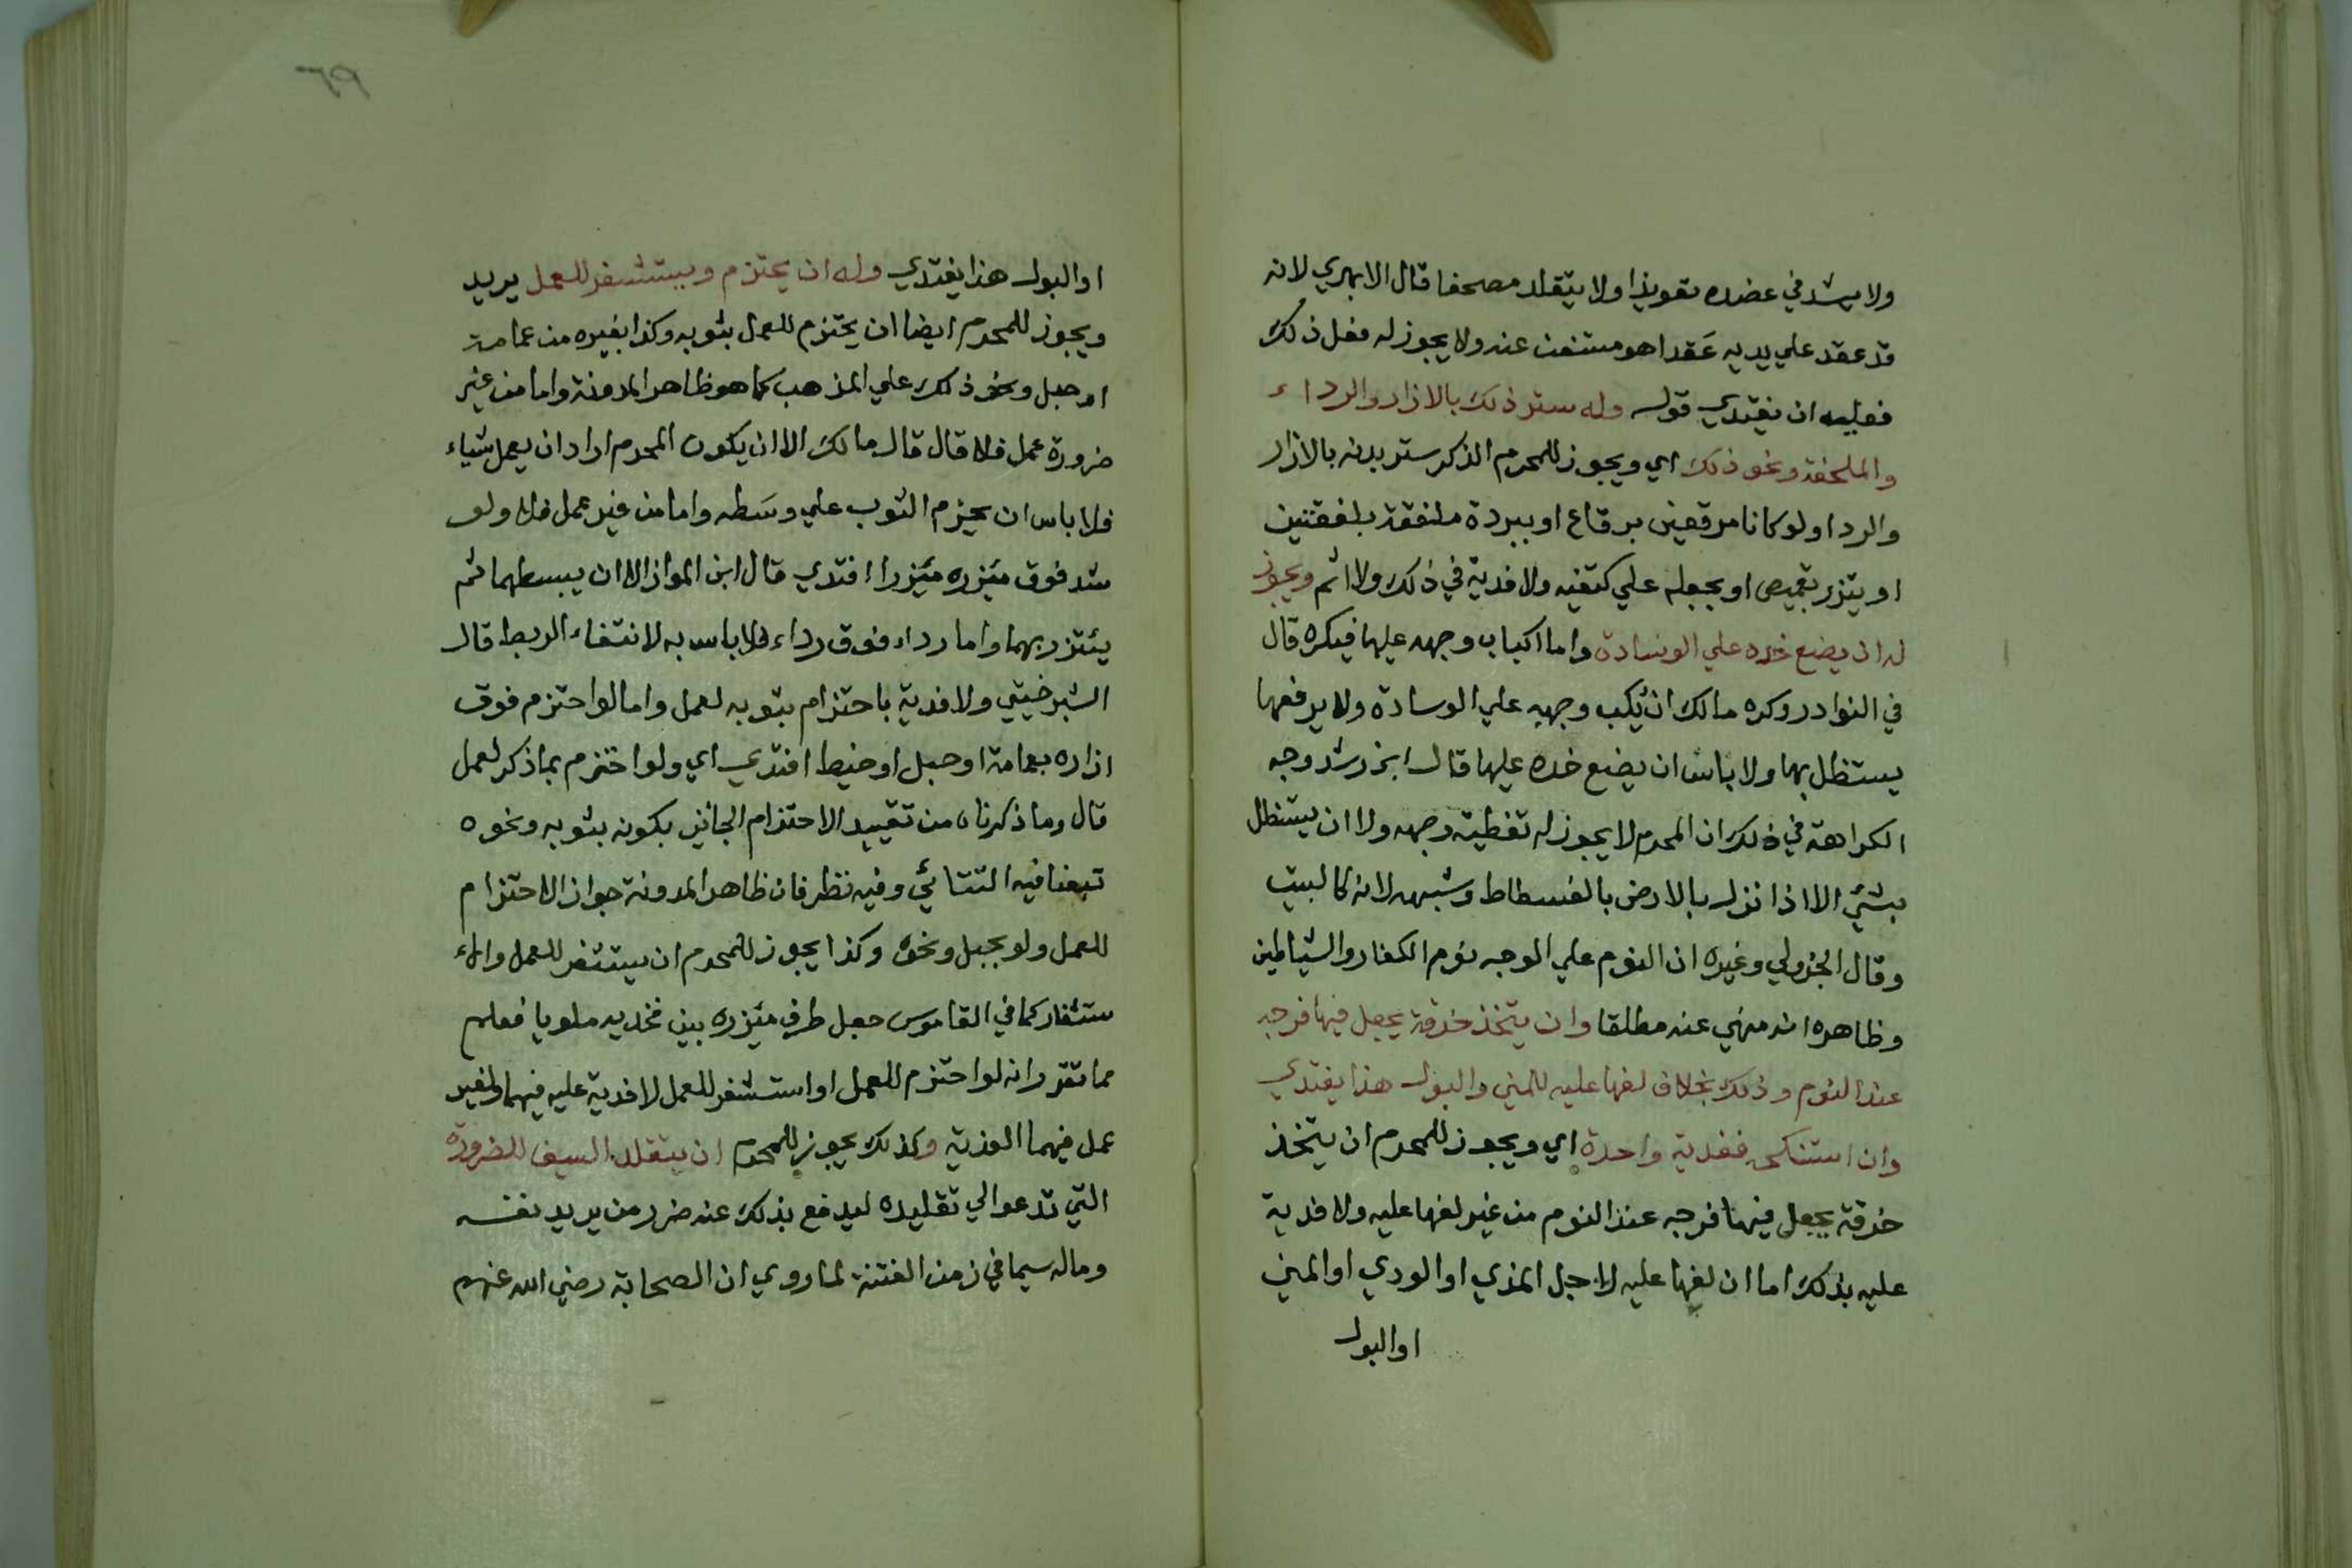 ولا يشد في عضده تعويذا ولا يتقلد مصحفا قال الابهري لانه
قد عقد علي يديه عَقدا هو مستغن عنه ولا يجوز له فعل ذلك
فعليه ان يفتدي قوله وله ستر ذلك بالازار والرداء
والملحفة ونحو ذلك اي ويجوز للمحرم الذكر ستر بدنه بالازار
والردا ولو كانا مرقعين برقاع او ببردة ملفقة بلفقتين
او يتزر بقميص او يجعله علي كتفيه ولا فدية في ذلك ولا اثم ويجوز
له ان يضع خده علي الوسادة واما اكباب وجهه عليها فيكره قال
في النوادر وكره مالك ان يكب وجهه علي الوسادة ولا يرفعها
يستظل بها ولا باس ان يضع خده عليها قال ابن رشد وجه
الكراهة في ذلك ان المحرم لا يجوز له تغطية وجهه ولا ان يستظل
بشيء الا اذا نزل بالارض بالفسطاط وشبهه لانه كالبيت
وقال الجزولي وغيره ان النوم علي الوجه نوم الكفار والشياطين
وظاهره انه منهي عنه مطلقا وان يتخذ خرقة يجعل فيها فرجه
عند النوم وذلك بخلاف لفها عليه للمني والبول هذا يفتدي
وان استنكحه ففدية واحدة اي ويجوز للمحرم ان يتخذ
خرقة يجعل فيها فرجه عند النوم من غير لفها عليه ولا فدية
عليه بذلك اما ان لفها عليه لاجل المذي او الودي او المني
او البول
٦٩
او البول هذا يفتدي وله ان يحتزم ويستثفر للعمل يريد
ويجوز للمحرم ايضا ان يحتزم للعمل بثوبه وكذا بغيره من عمامة
او حبل ونحو ذلك علي المذهب كما هو ظاهر المدونة واما من غير
ضرورة عمل فلا قال قال مالك الا ان يكون المحرم اراد ان يعمل شياء
فلا باس ان يحزم الثوب علي وسَطه واما من غير عمل فلا ولو
شد فوق مئزره مئزرا افتدي قال ابن المواز الا ان يبسطهما ثم
يئتزر بهما واما رداء فوق رداء فلا باس به لانتفاء الربط قال
الشبرخيتي ولا فدية باحتزام بثوبه لعمل واما لو احتزم فوق
ازاره بعمامة او حبل او خيط افتدي اي ولو احتزم بما ذكر لعمل
قال وما ذكرناه من تقييد الاحتزام الجائز بكونه بثوبه ونحوه
تبعنا فيه التتائي وفيه نظر فان ظاهر المدونة جواز الاحتزام
للعمل ولو بحبل ونحوه وكذا يجوز للمحرم ان يستثفر للعمل والاء
ستثفار كما في القاموس جعل طرف مئزره بين فخديه ملويا فعلم
مما تقرر انه لو احتزم للعمل او استثفر للعمل لا فدية عليه فيهما ولغير
عمل فيهما الفدية وكذلك يجوز للمحرم ان يتقلد السيف للضرورة
التي تدعوا لي تقليده ليدفع بذلك عنه ضرر من يريد نفسه
وماله سيما في زمن الفتنة لما روي ان الصحابة رضي الله عنهم